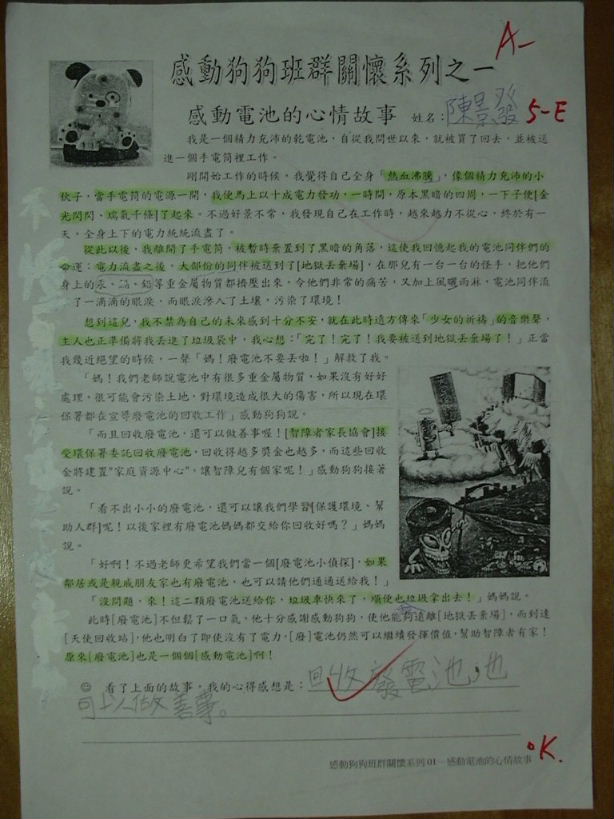 A-
感動狗狗班群關懷系列之一
感動電池的心情故事 姓名：陳景發 5-E
我是一個精力充沛的乾電池，自從我問世以來，就被買了回去，並被送
進一個手電筒裡工作。
剛開始工作的時候，我覺得自己全身「熱血沸騰」，像個精力充沛的小
伙子，當手電筒的電源一開，我便馬上以十成電力發功，一時間，原本黑暗的四周，一下子便[金
光閃閃、瑞氣千條]了起來。不過好景不常，我發現自己在工作時，越來越力不從心，終於有一
天，全身上下的電力統統流盡了。
從此以後，我離開了手電筒，被暫時棄置到了黑暗的角落，這使我回憶起我的電池同伴們的
命運：電力流盡之後，大部份的同伴被送到了[地獄丟棄場]，在那兒有一台一台的怪手，把他們
身上的汞、鎘、鉛等重金屬物質都擠壓出來，令他們非常的痛苦，又加上風曬雨淋，電池同伴流
了一滴滴的眼淚，而眼淚滲入了土壤，污染了環境！
想到這兒，我不禁為自己的未來感到十分不安，就在此時遠方傳來「少女的祈禱」的音樂聲，
主人也正準備將我丟進了垃圾袋中，我心想：「完了！完了！我要被送到地獄丟棄場了！」正當
我幾近絕望的時候，一聲「媽！廢電池不要丟啦！」解救了我。
「媽！我們老師說電池中有很多重金屬物質，如果沒有好好
處理，很可能會污染土地，對環境造成很大的傷害，所以現在環
保署都在宣導廢電池的回收工作」感動狗狗說。
「而且回收廢電池，還可以做善事喔！[智障者家長協會]接
受環保署委託回收廢電池，回收得越多獎金也越多，而這些回收
金將建置"家庭資源中心"，讓智障兒有個家呢！」感動狗狗接著
說。
「看不出小小的廢電池，還可以讓我們學習[保護環境、幫
助人群]呢！以後家裡有廢電池媽媽都交給你回收好嗎？」媽媽
說。
「好啊！不過老師更希望我們當一個[廢電池小偵探]，如果
鄰居或是親戚朋友家也有廢電池，也可以請他們通通送給我！」
「沒問題、來！這二顆廢電池送給你，垃圾車快來了，順便也垃圾拿出去！」媽媽說。
此時[廢電池]不但鬆了一口氣，他十分感謝感動狗狗，使他能夠遠離[地獄丟棄場]，而到達
[天使回收站]，他也明白了即使沒有了電力，[廢]電池仍然可以繼續發揮價值，幫助智障者有家！
原來[廢電池]也是一個個[感動電池]啊！
☺ 看了上面的故事，我的心得感想是：回收廢電池，也
可以做善事。
OK.
感動狗狗班群關懷系列 01—感動電池的心情故事